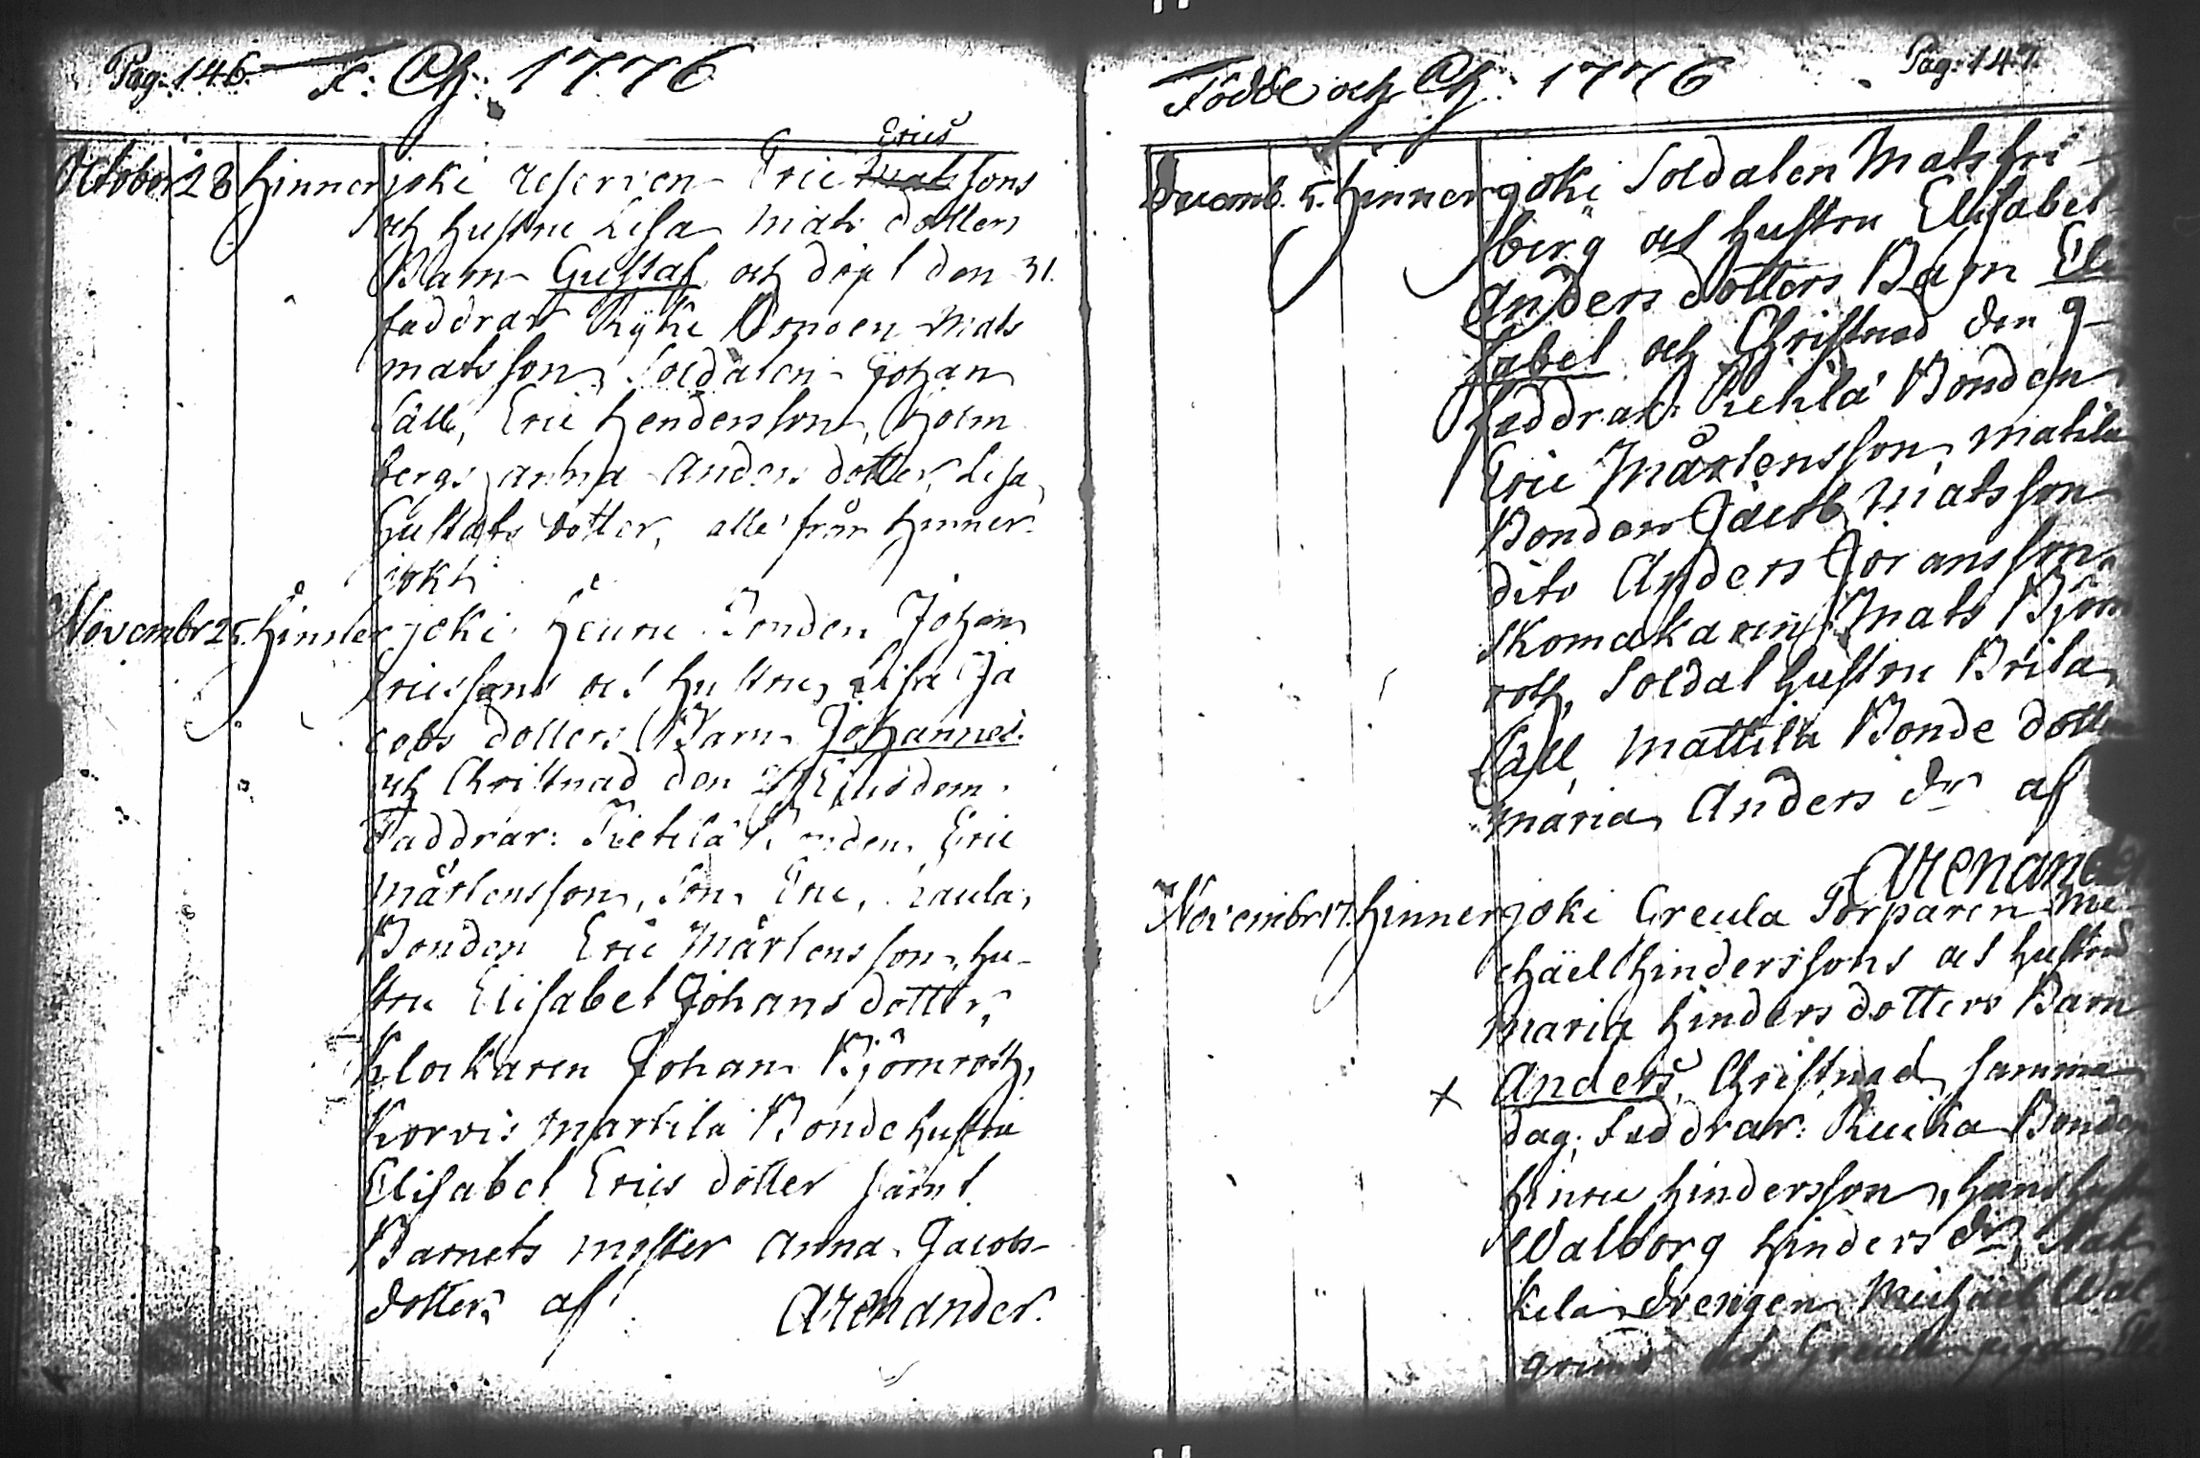 Pag: 146. F: Ch: 1776
Erics
October 28 Hinnerjoki reserven Eric Matssons
och hustru Lisa Mats dotters
Barn Gustaf och döpt den 31.
faddrar Kyhe Bonden Mats
matsson, Soldaten Johan
Säll, Eric Hendersson, Holm
bergs anna Anders dotter, Lisa
Gustafs dotter, alle från Hinner-
joki
Novembr 25. Hinnerjoki Heuru Bonden Johan
Ericssons och hustru Lisa Ja
cobs dotters Barn Johannes.
och Christnad den Ejusdem.
Faddrar: Kietilä Bonden Eric
Mårtensson, Son Eric,
Bonden Eric Mårtensson, hu-
stru Elisabet Johans dotter,
Klockaren Johan Björnroth,
Korvis Martila Bonde hustru
Elisabet Erics dotter sämt
Barnets moster Anna Jacobs-
dotter af Arenander.
Födde och Ch: 1776 Pag: 147.
Decemb. 5. Hinnerjoki Soldaten Mats fri-
berg och hustru Elisabet
Anders dotters Barn Eli
sabet och Christnad den 9
faddrar: Bonden
Eric Mårtensson, Matila
Bonden Jacob Matsson
dito Anders Joransson,
Skomakaren Mats Björn
roth, Soldat hustru Brita
Säll, Mattila Bonde dotter
Maria Anders dr af
Arenander
Novembr 17. Hinnerjoki Greula Torparen Mi-
chäel Hinderssons och hustru
Maria Hinders dotters Barn
x Anders, Christnad samma
dag, Faddrar: Bonden
Hinric Hindersson, hans hustru
Walborg Hinders dr,
kila Drengen Michael Wal
grund och Greula piga